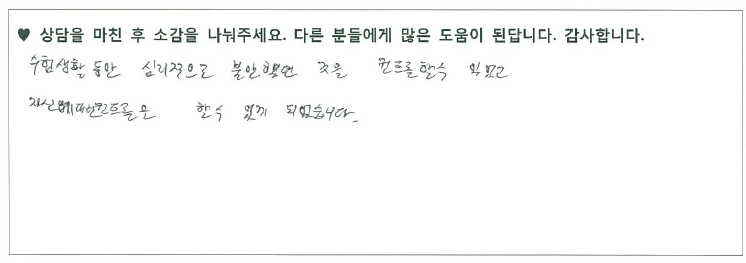 ♥ 상담을 마친 후 소감을 나눠주세요. 다른 분들에게 많은 도움이 된답니다. 감사합니다.
수험생활 동안 심리적으로 불안했던 것을 컨트롤할수 있었고
자신에대한컨트롤을 할수 있게 되었습니다.